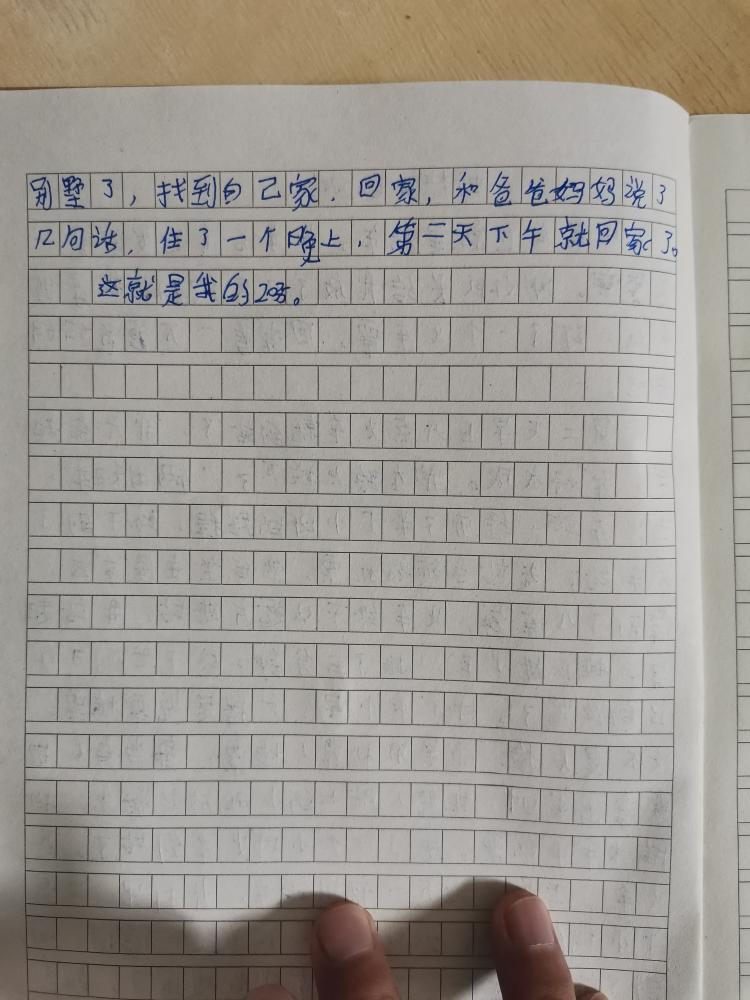 别墅了，找到自己家．回家，和爸爸妈妈说了
几句话．住了一个晚上，第二天下午就回家了。
这就是我的20后。